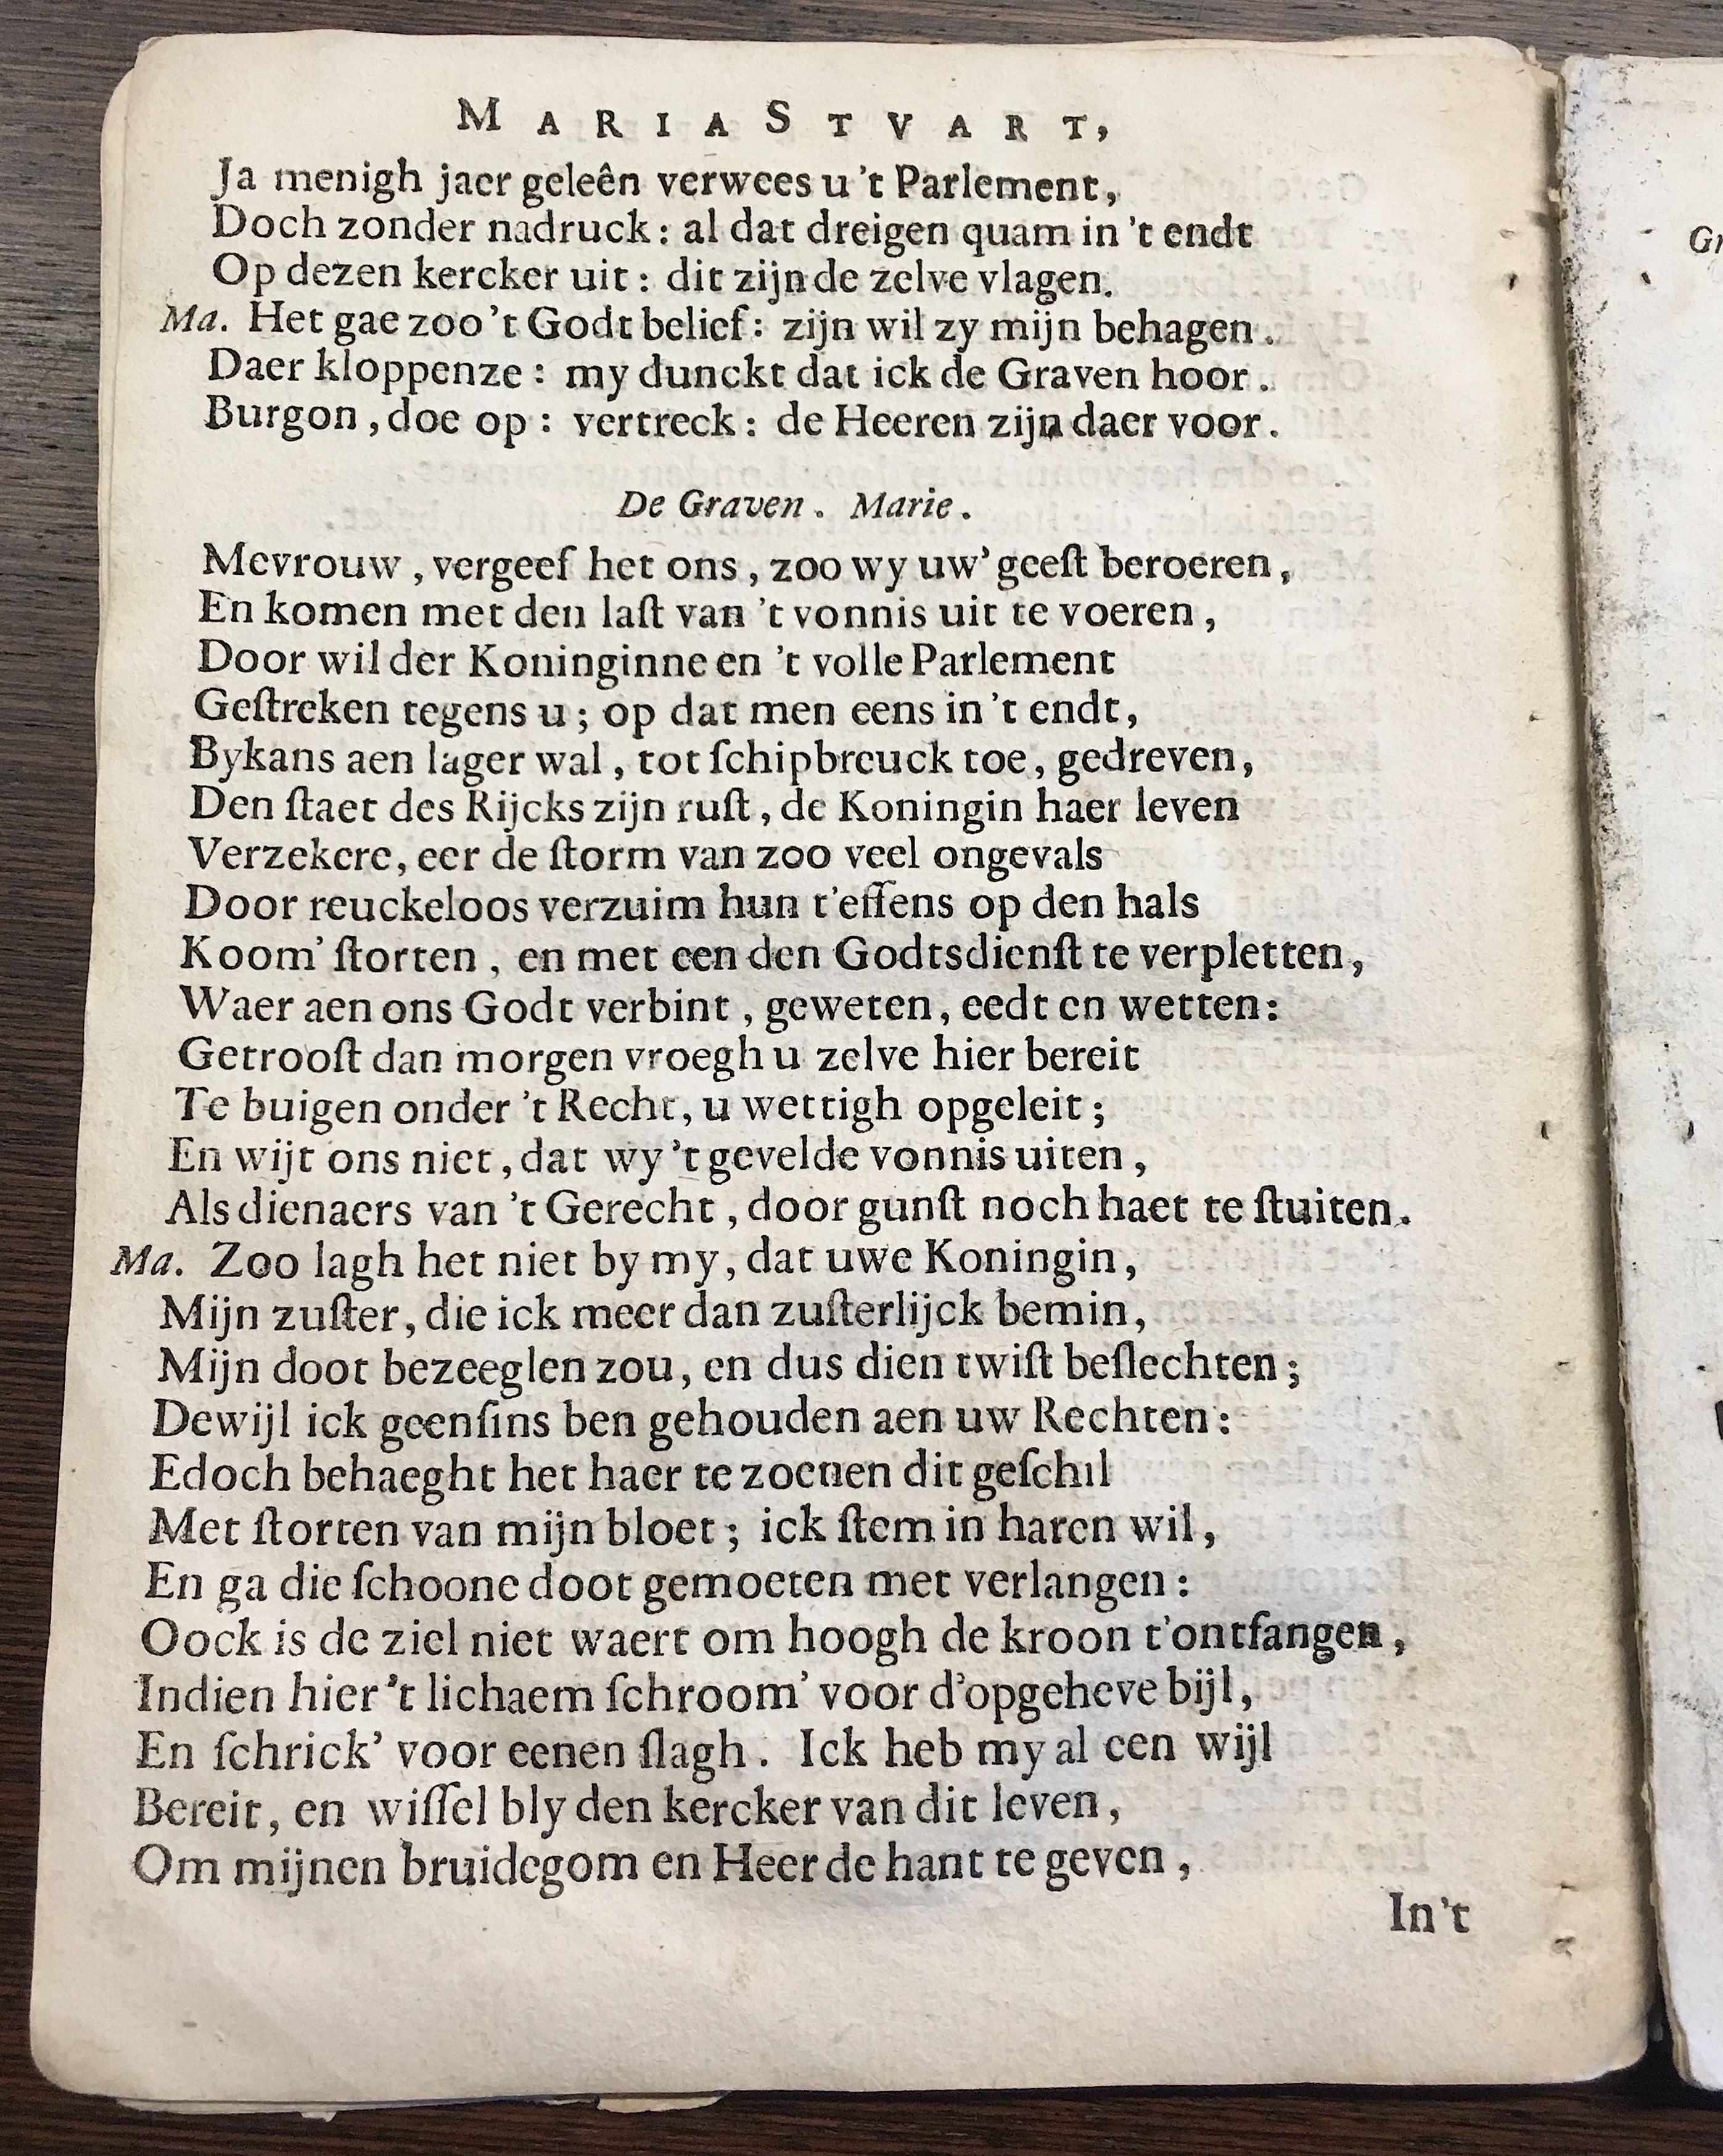 MARIA STVART,
Ja menigh jaer geleên verwees u 't Parlement,
Doch zonder nadruck: al dat dreigen quam in 't endt
Op dezen kercker uit: dit zijn de zelve vlagen.
Ma. Het gae zoo 't Godt belief: zijn wil zy mijn behagen.
Daer kloppenze: my dunckt dat ick de Graven hoor.
Burgon, doe op: vertreck: de Heeren zijn daer voor.
De Graven. Marie.
Mevrouw, vergeef het ons, zoo wy uw' geeſt beroeren,
En komen met den laſt van 't vonnis uit te voeren,
Door wil der Koninginne en 't volle Parlement
Geſtreken tegens u; op dat men eens in 't endt,
Bykans aen lager wal, tot ſchipbreuck toe, gedreven,
Den ſtaet des Rijcks zijn ruſt, de Koningin haer leven
Verzekere, eer de ſtorm van zoo veel ongevals
Door reuckeloos verzuim hun t'effens op den hals
Koom' ſtorten, en met een den Godtsdienſt te verpletten,
Waer aen ons Godt verbint, geweten, eedt en wetten:
Getrooſt dan morgen vroegh u zelve hier bereit
Te buigen onder 't Recht, u wettigh opgeleit;
En wijt ons niet, dat wy 't gevelde vonnis uiten,
Als dienaers van 't Gerecht, door gunſt noch haet te ſtuiten.
Ma. Zoo lagh het niet by my, dat uwe Koningin,
Mijn zuſter, die ick meer dan zuſterlijck bemin,
Mijn doot bezeeglen zou, en dus dien twiſt beſlechten;
Dewijl ick geenſins ben gehouden aen uw Rechten:
Edoch behaeght het haer te zoenen dit geſchil
Met ſtorten van mijn bloet; ick ſtem in haren wil,
En ga die ſchoone doot gemoeten met verlangen:
Oock is de ziel niet waert om hoogh de kroon t'ontfangen,
Indien hier 't lichaem ſchroom' voor d'opgeheve bijl,
En ſchrick' voor eenen ſlagh. Ick heb my al een wijl
Bereit, en wiſſel bly den kercker van dit leven,
Om mijnen bruidegom en Heer de hant te geven,
In 't
Gr